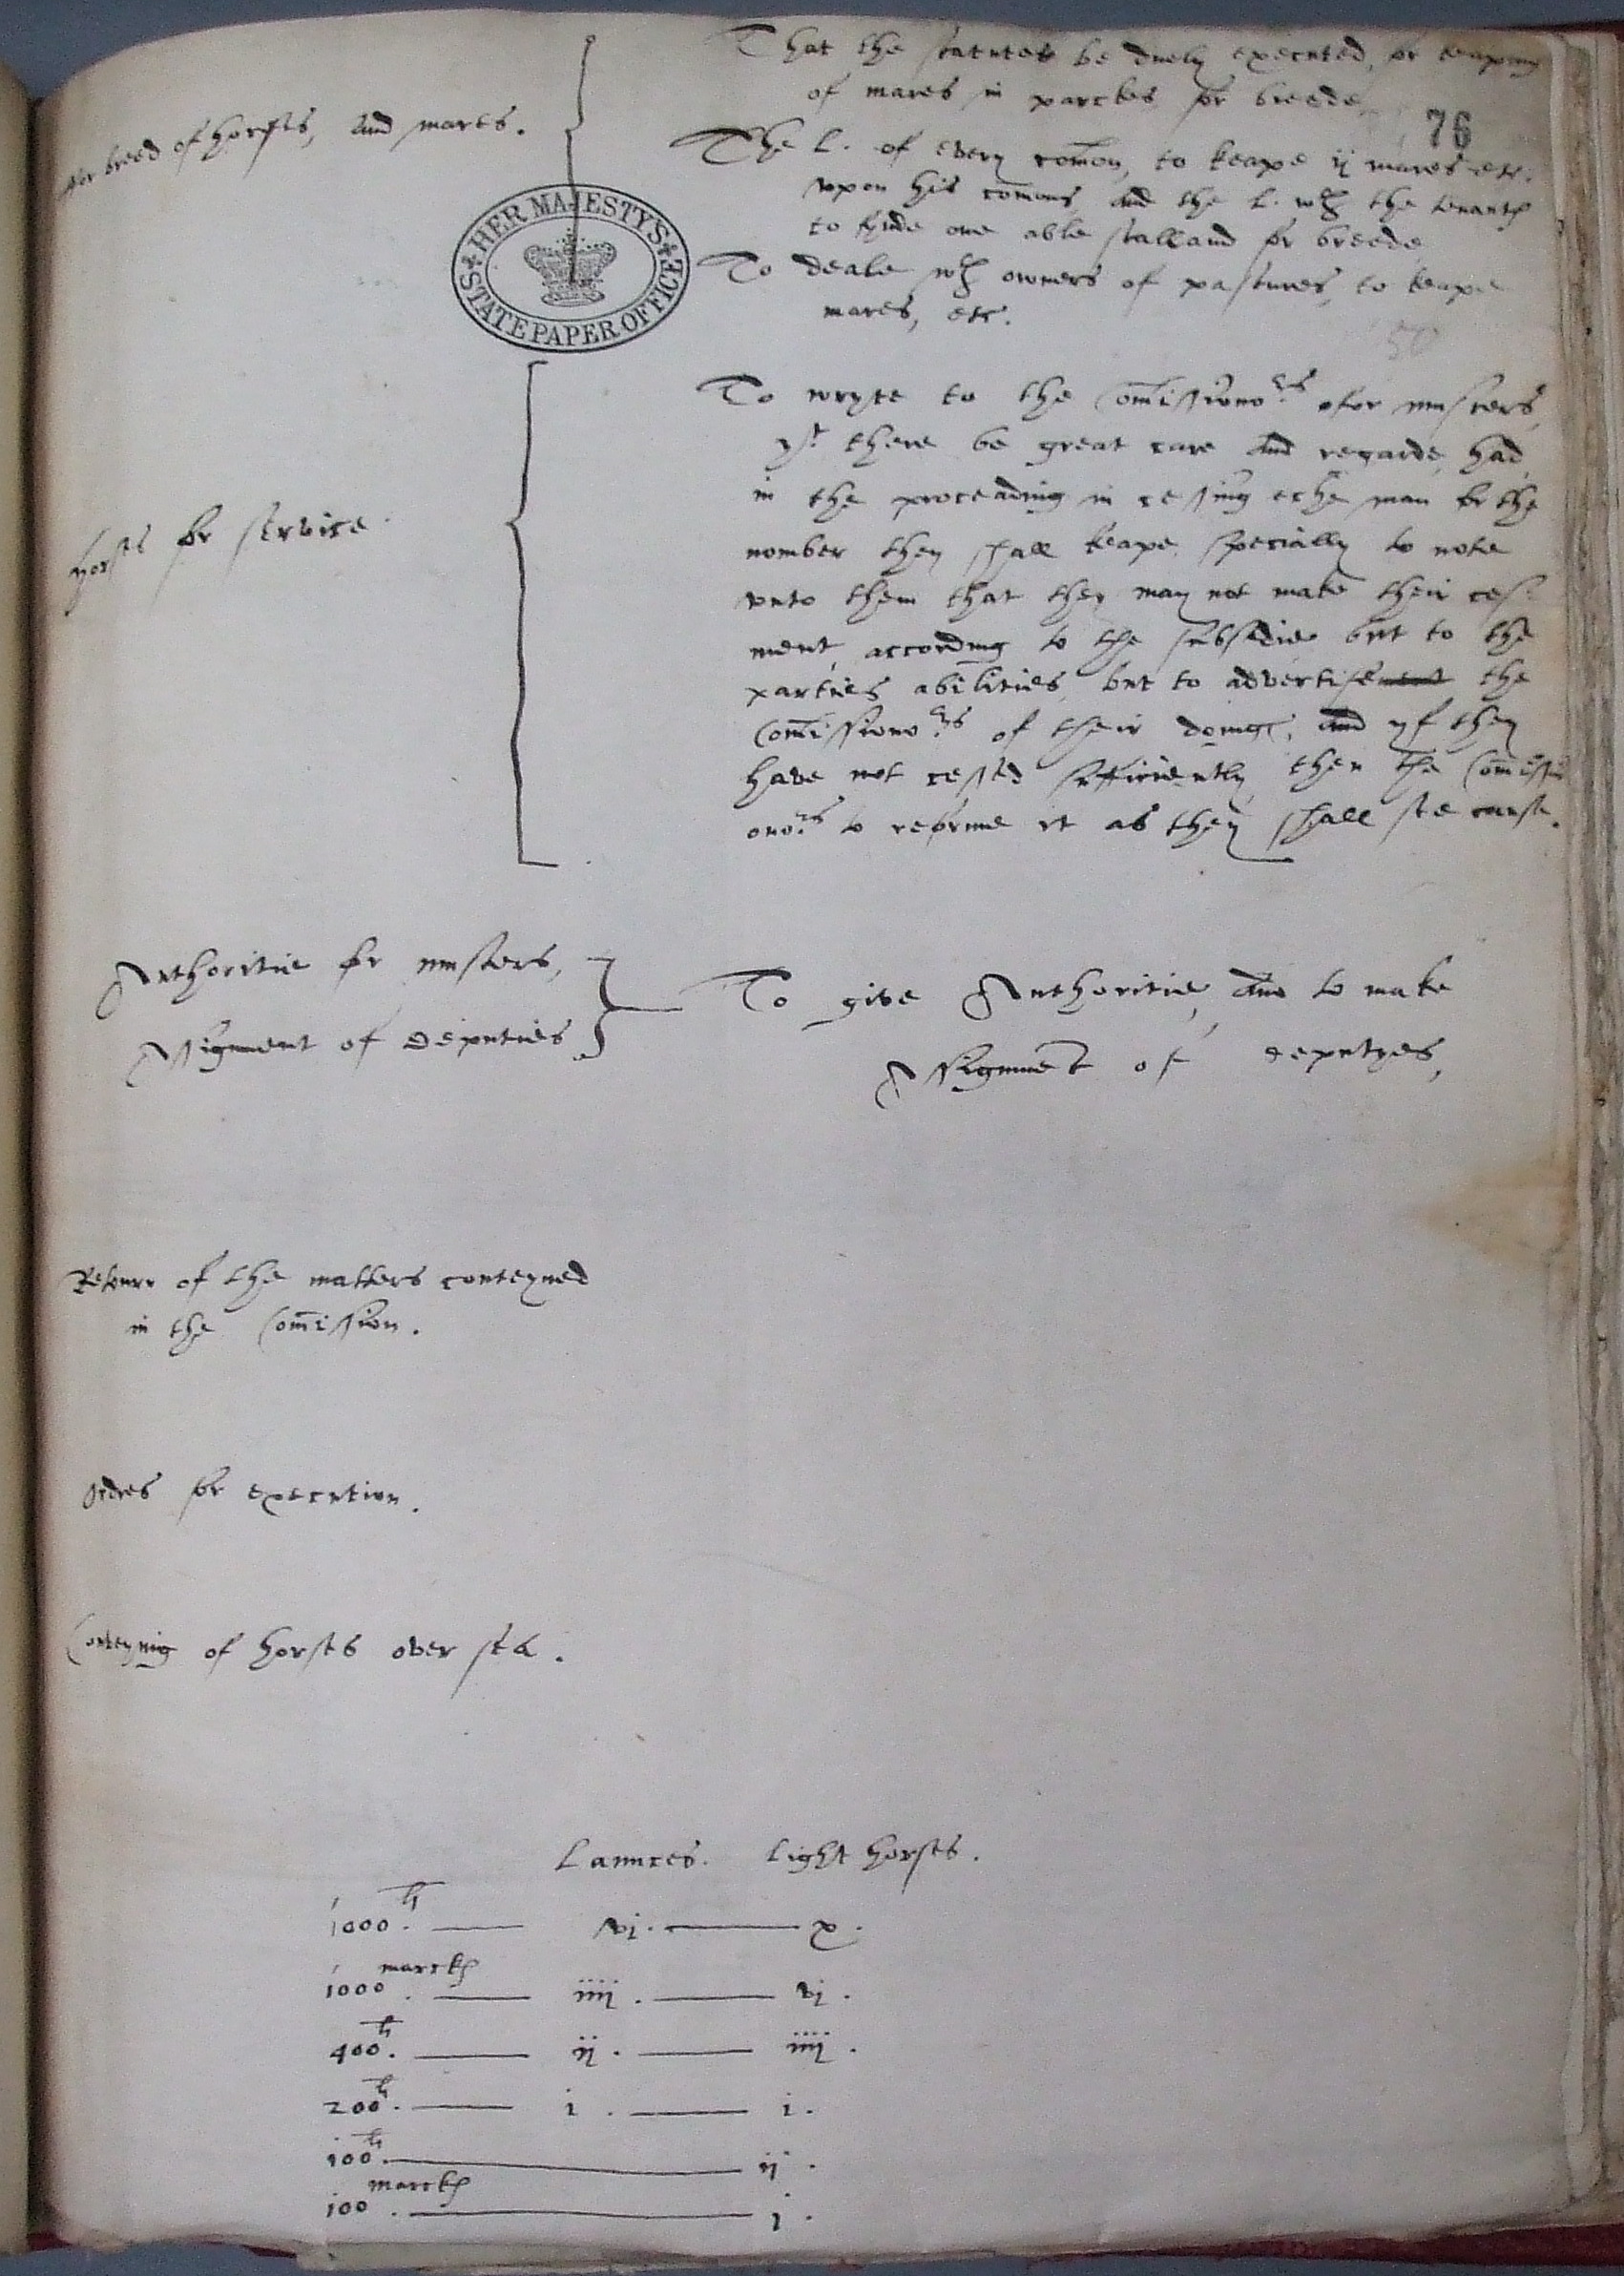 For breed of horsses, and mares.
That the statutes be duely executed, for keaping
of mares in parckes for breede.
76
The L. of every comon, to keape ij mares etc.
upon his comons and the L. wth the tenantes
to fynde one able stalland for breede
To deale wth owners of pastures, to keape
mares, etc.
HER MAJESTY'S
STATE PAPER OFFICE
50
horses for service
To wryte to the Comissionors for musters,
yt there be great care and regarde, had
in the proceading in cessing eche man for the
nomber they shall keape, specially to note
unto them that they may not make their ces=
ment, according to the subsedie but to the
parties abilities, but to advertise the
Comissionors of their doinges, and yf they
have not cessed sufficiently, then the Comissi
onors to reforme it as they shall see cause.
Authoritie for musters,
Assignment of deputies
To give Authoritie, and to make
Assignment of deputyes,
Retourn of the matters conteyned
in the Comission.
Ordres for execution.
Conveynig of horses over sea.
Launces. Light horses.
1000 li. vj. x.
1000 marckes. iiij. vj.
400 li. ij. iiij.
200 li. i. i.
100 li. ij.
100 marckes. j.